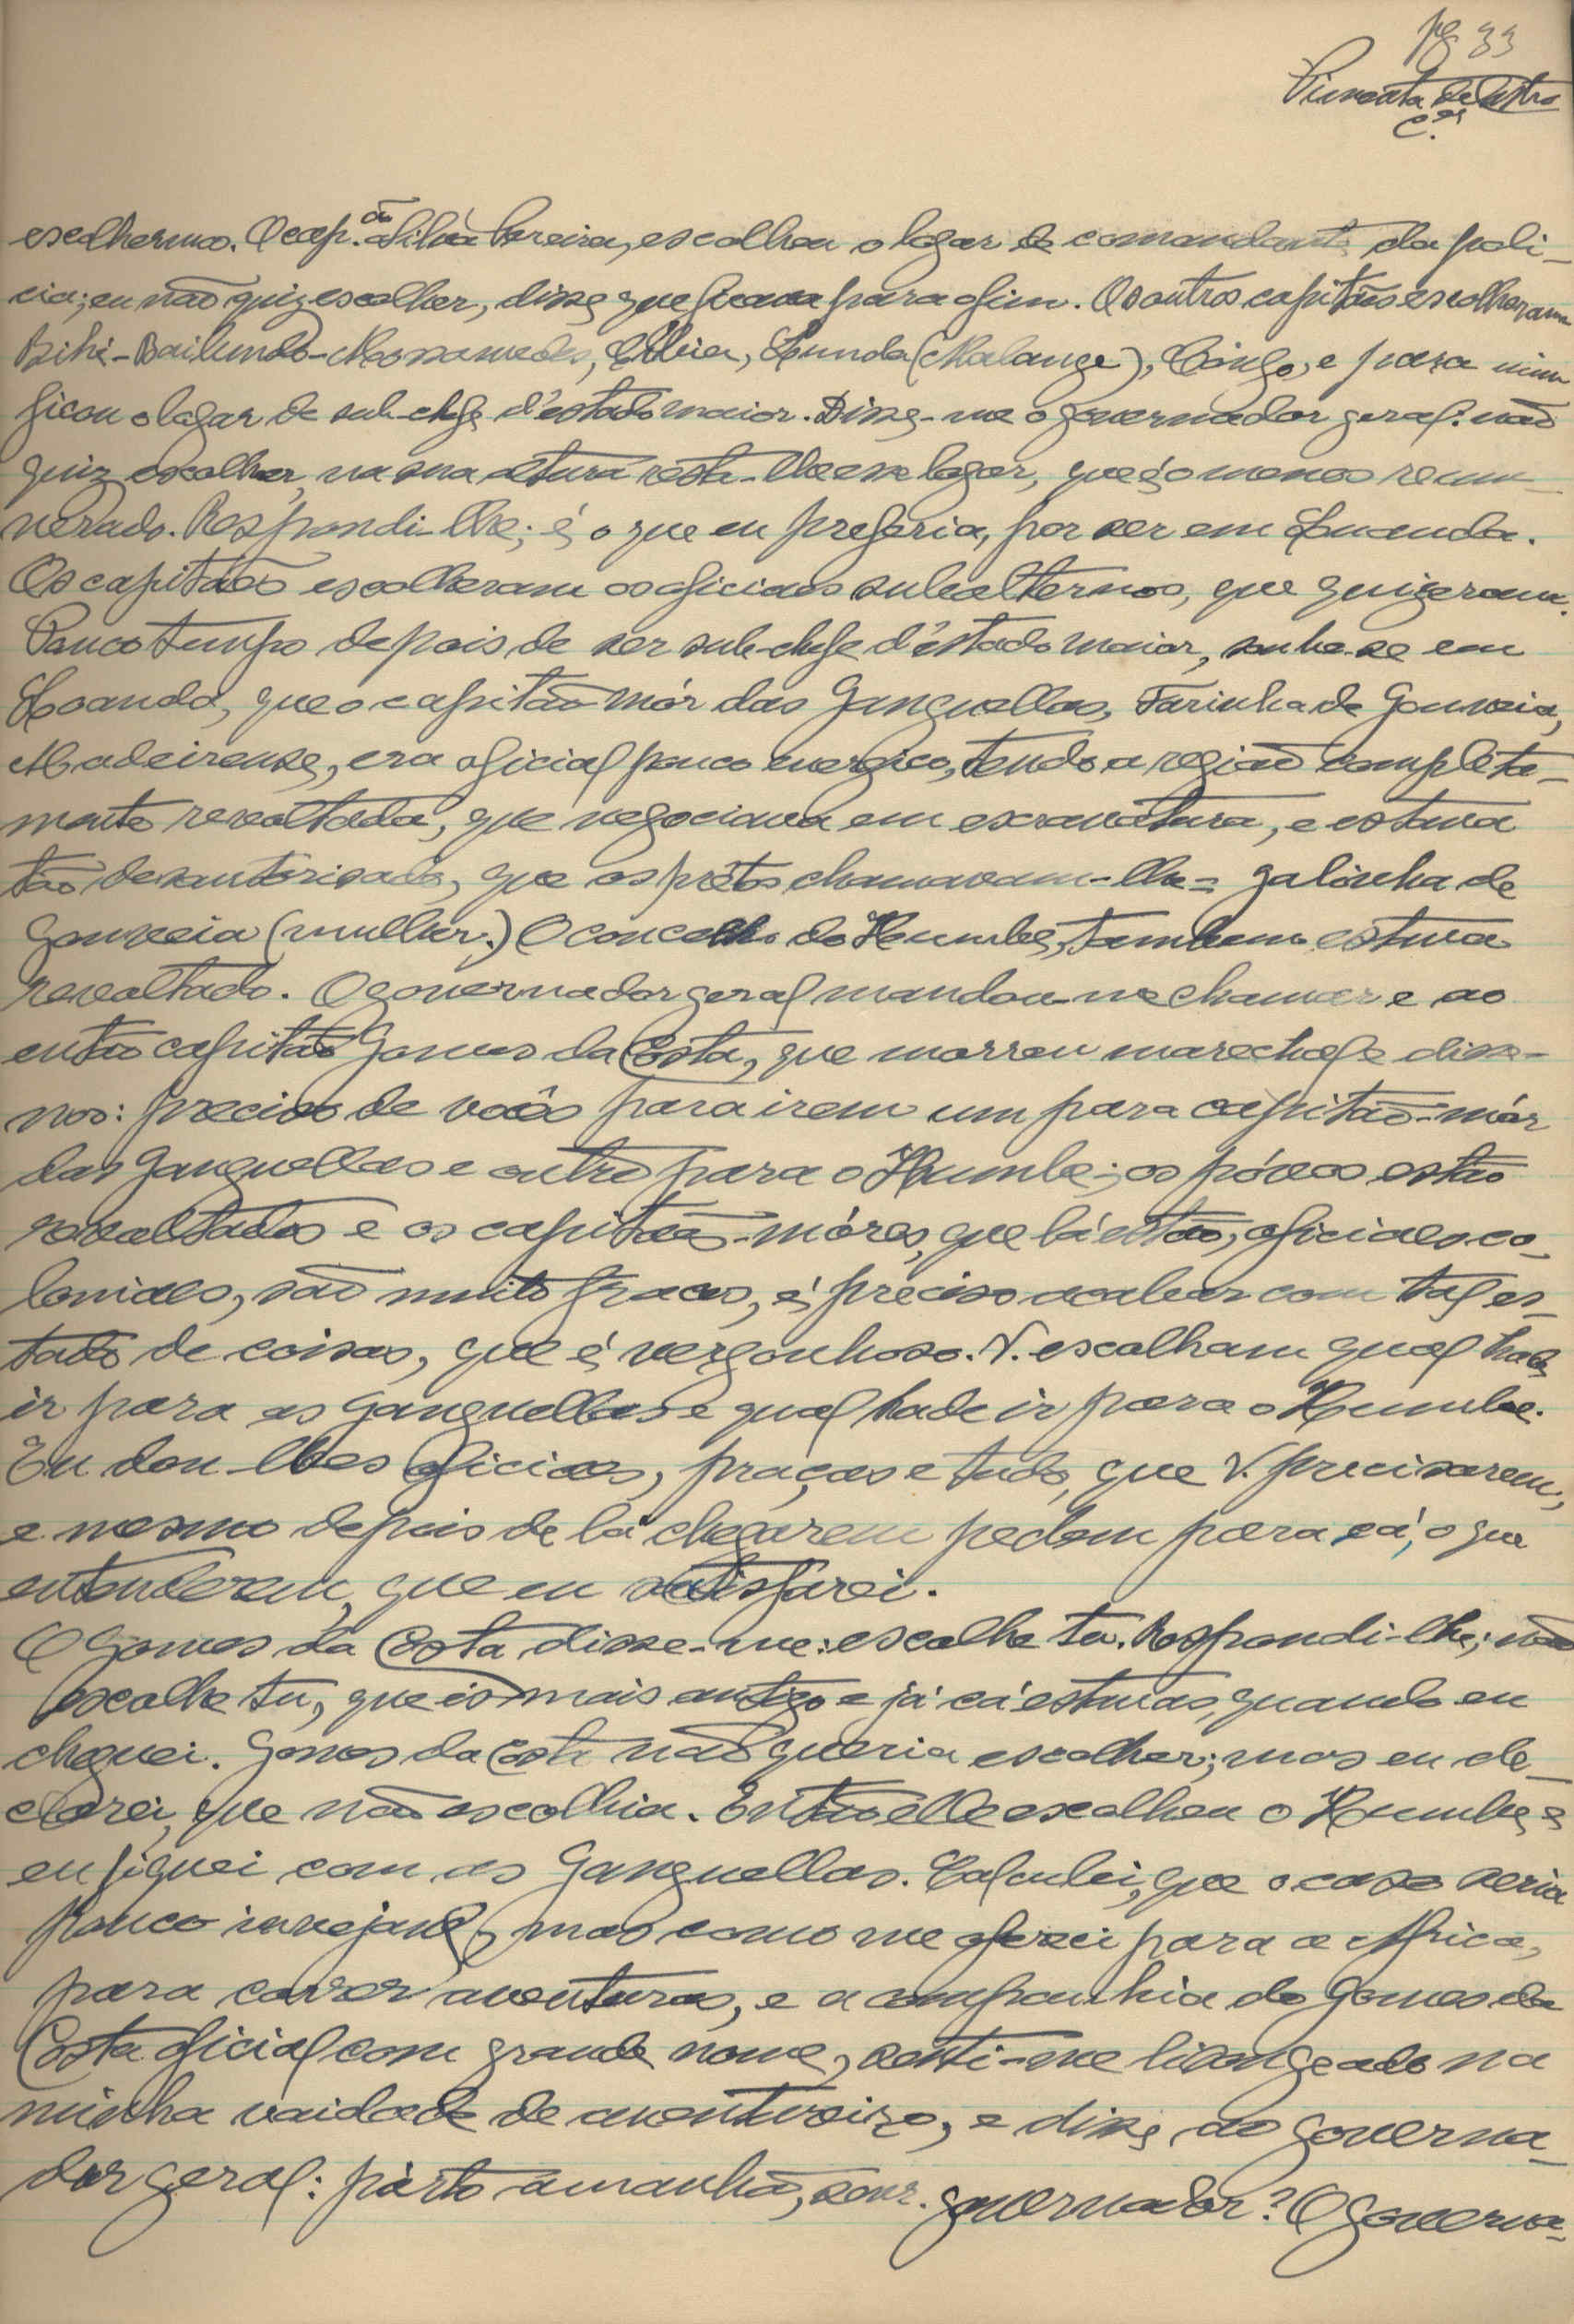 pg 33
Pimenta de Castro
C.el
escolhermos. O cap.ão Silva Pereira, escolheu o logar de comandante da poli-
cia; eu não quiz escolher, disse que ficava para o fim. Os outros capitães escolheram
Bihé-Bailundo-Mossamedes, Huila, Lunda (Malange), Congo, e para mim
ficou o logar de sub-chefe d'estado maior. Disse-me o governador geral: não
quiz escolher, na sua altura resta-lhe esse logar, que é o menos remu-
nerado. Respondi-lhe; é o que eu preferia, por ser em Luanda.
Os capitães escolheram os oficiaes subalternos, que quizeram.
Pouco tempo depois de ser sub-chefe d'estado maior, soube-se em
Loanda, que o capitão-mór das Ganguellas, Farinha de Gouveia,
Madeirense, era oficial pouco energico, tendo a região completa-
mente revoltada, que negociava em escravatura, e estava
tão desautorisado, que os prêtos chamavam-lhe = galinha de
Gouveia (mulher.) O concelho do Humbe, tambem estava
revoltado. O governador geral mandou-me chamar e ao
então capitão Gomes da Costa, que morreu marechal e disse-
nos: preciso de vocês para irem um para capitão-mór
das Ganguellas e outro para o Humbe; os póvos estão
revoltados e os capitães-móres, que lá estão, oficiaes co-
loniaes, são muito fracos, é preciso acabar com tal es-
tado de coisas, que é vergonhoso. V. escolham qual hade
ir para as Ganguellas e qual hade ir para o Humbe.
Eu dou-lhes oficiaes, praças e tudo, que V. precisarem,
e mesmo depois de lá chegarem pedem para cá, o que
entenderem, que eu satisfarei.
O Gomes da Costa disse-me: escolhe tu. Respondi-lhe; não
escolhe tu, que és mais antigo e já cá estavas, quando eu
cheguei. Gomes da Costa não queria escolher; mas eu de-
clarei, que não escolhia. Então elle escolheu o Humbe, e
eu fiquei com as Ganguellas. Calculei, que o caso seria
pouco invejavel, mas como me ofereci para a Africa,
para correr aventuras, e a companhia do Gomes da
Costa oficial com grande nome, senti-me lisongeado na
minha vaidade de aventureiro, e disse, ao governa-
dor geral: párto amanhã, senr. governador? O governa-